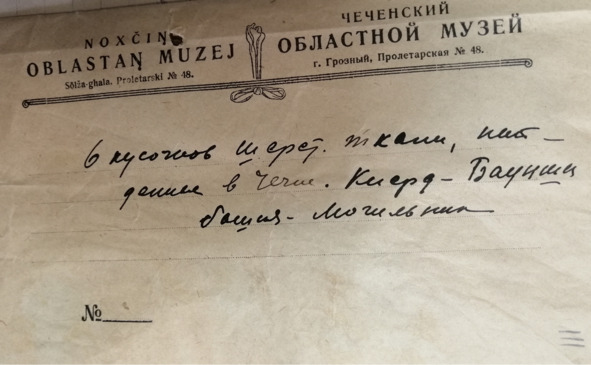 NOXÇIŅ
OBLASTAŅ MUZEJ
Sölža-ghala. Proletarski № 48.
ЧЕЧЕНСКИЙ
ОБЛАСТНОЙ МУЗЕЙ
г. Грозный, Пролетарская № 48.
6 кусочков шерст. ткани, най-
денные в Чечне.
башня - Могильник
№